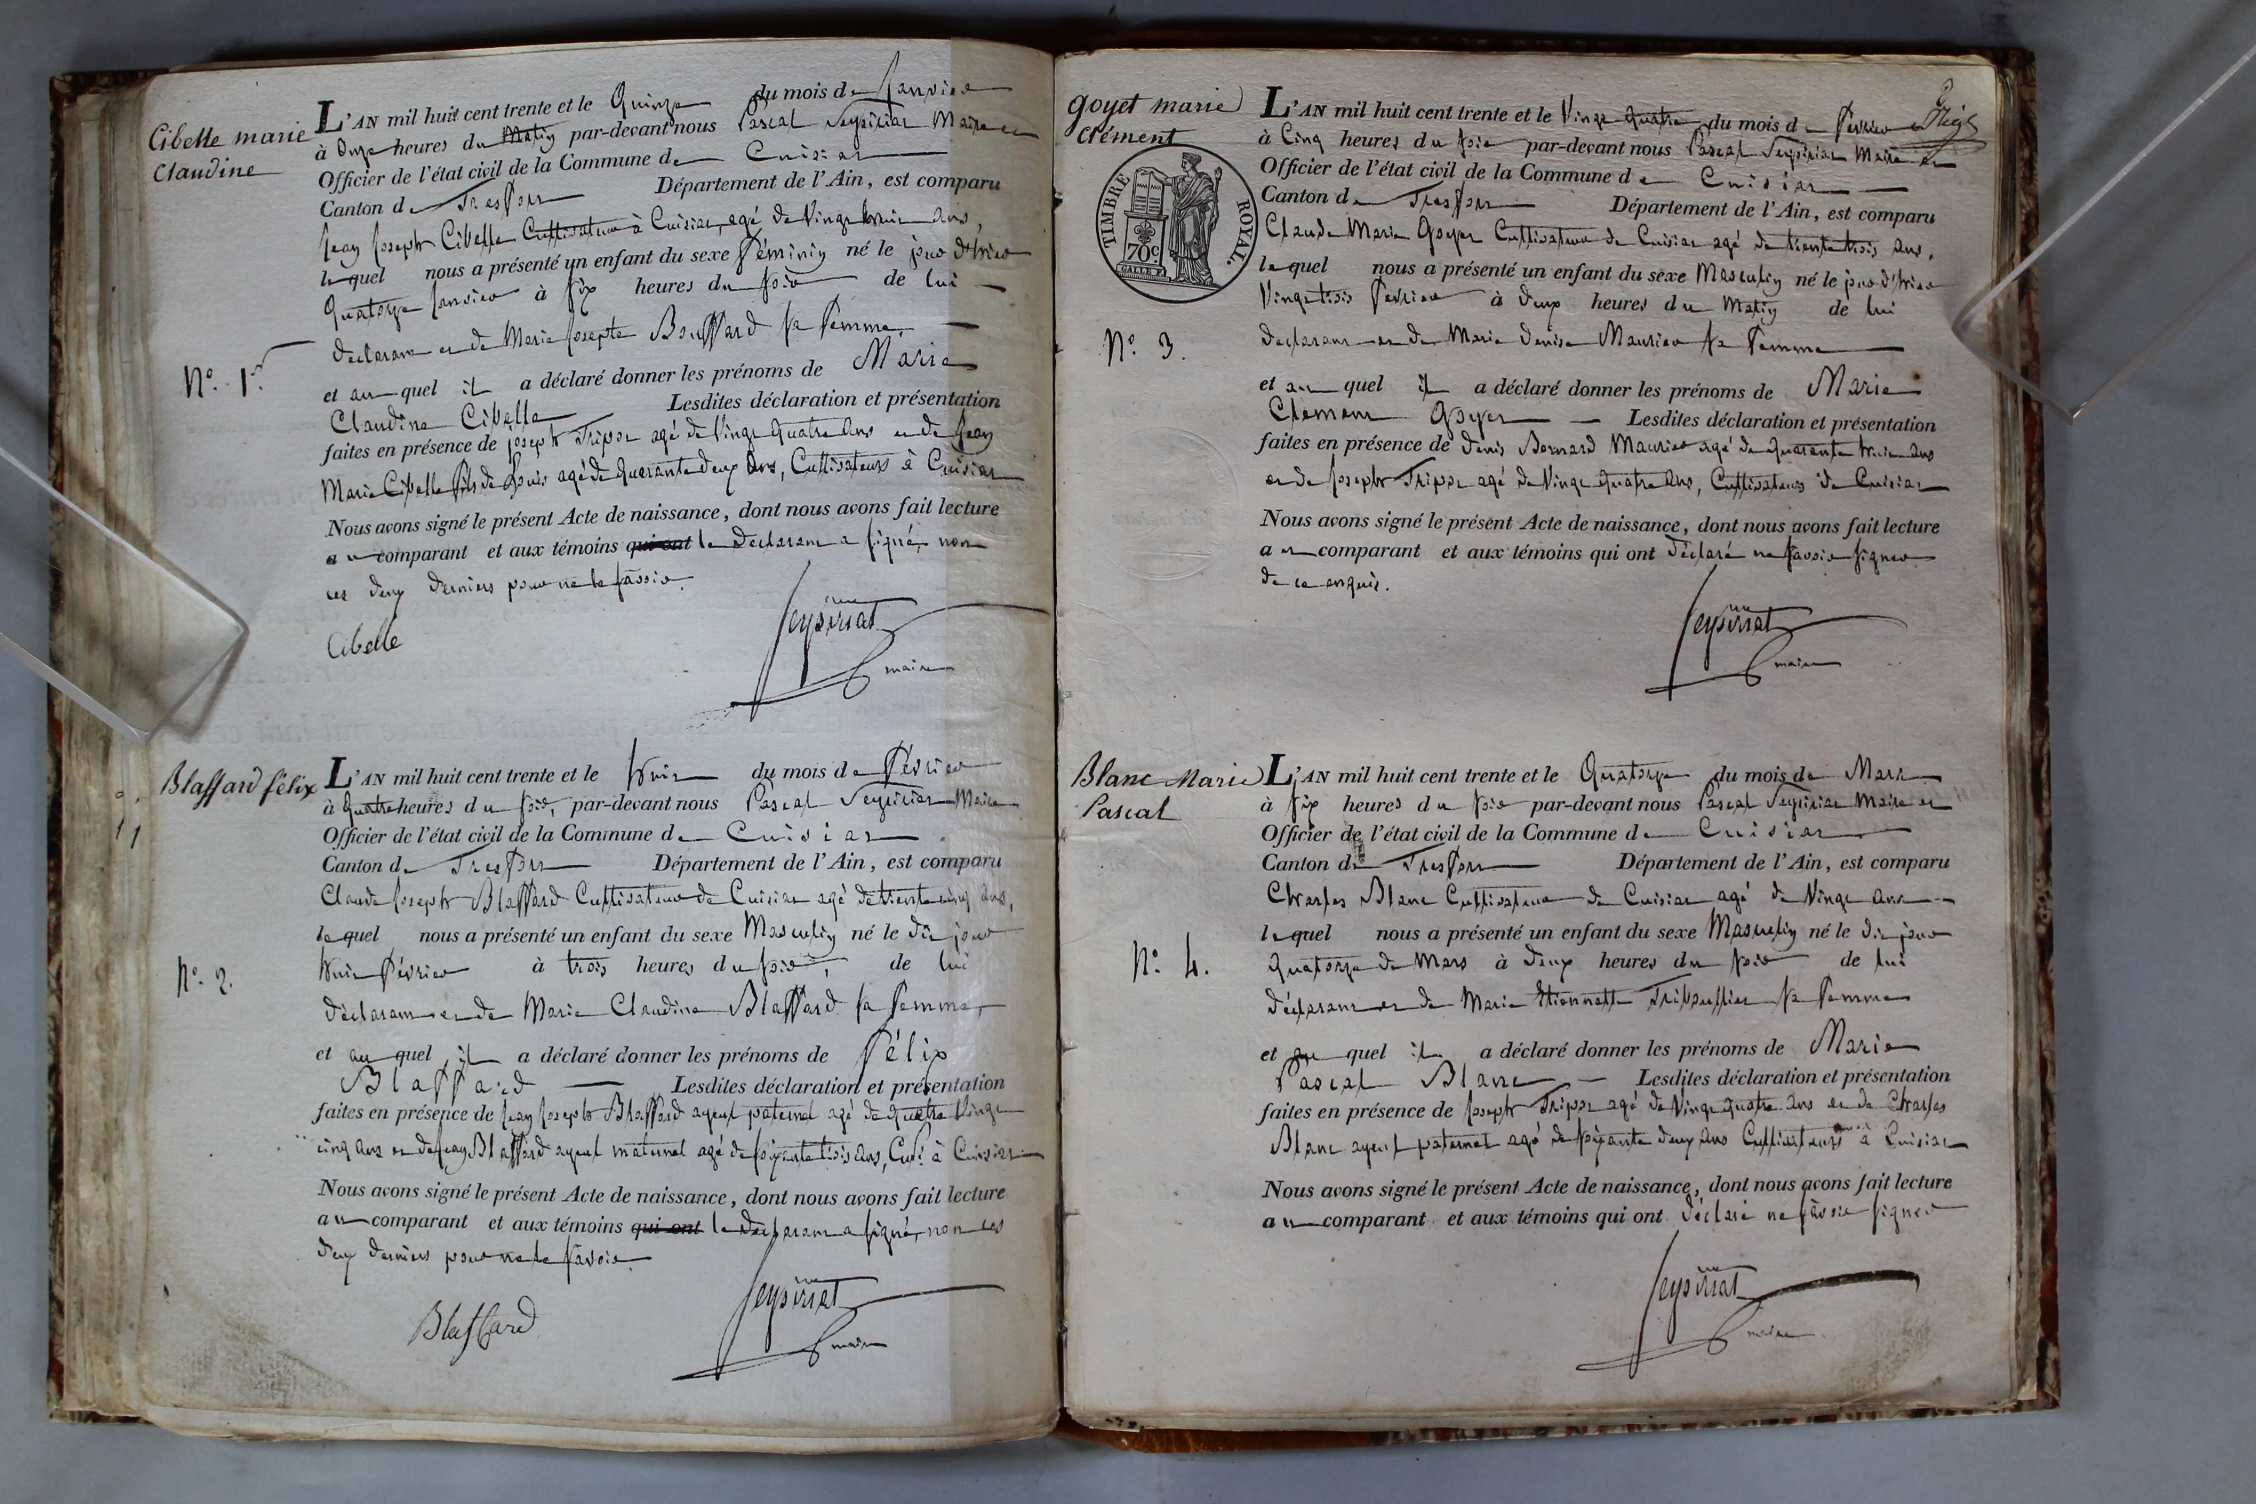 Cibelle marie
Claudine
L'AN mil huit cent trente et le Quinze du mois de Janvier
à Onze heures du Matin par-devant nous Pascal Seysiriat Maire et
Officier de l'état civil de la Commune de Cuisiat
Canton de Treffort Département de l'Ain, est comparu
Jean Joseph Cibelle Cultivateur à Cuisiat, agé de Vingt huit ans,
lequel nous a présenté un enfant du sexe féminin né le jour d'hier
Quatorze Janvier à six heures du soir de lui
déclarant et de Marie Josepte Bouffard sa femme,
N.º 1.er
et auquel il a déclaré donner les prénoms de Marie
Claudine Cibelle Lesdites déclaration et présentation
faites en présence de Joseph Tripoz agé de Vingt Quatre ans et de Jean
Marie Cibelle fils de Louis agé de Quarante deux ans, Cultivateurs à Cuisiat
Nous avons signé le présent Acte de naissance, dont nous avons fait lecture
au comparant et aux témoins qui ont le déclarant a signé, non
ces deux derniers pour ne le savoir.
Cibelle Seysiriat
maire
Blaffard félix
L'AN mil huit cent trente et le huit du mois de Février
à Quatre heures du soir, par-devant nous Pascal Seysiriat Maire
Officier de l'état civil de la Commune de Cuisiat
Canton de Treffort Département de l'Ain, est comparu
Claude Joseph Blaffard Cultivateur de Cuisiat agé de trente cinq ans,
lequel nous a présenté un enfant du sexe Masculin né le dit jour
huit Février à trois heures du soir, de lui
N.º 2.
déclarant et de Marie Claudine Blaffard sa femme,
et auquel il a déclaré donner les prénoms de Félix
Blaffard Lesdites déclaration et présentation
faites en présence de Jean Joseph Blaffard ayeul paternel agé de Quatre Vingt
cinq ans et de Jean Blaffard ayeul maternel agé de soixante trois ans, Cult. à Cuisiat
Nous avons signé le présent Acte de naissance, dont nous avons fait lecture
au comparant et aux témoins qui ont le déclarant a signé, non ces
deux derniers pour ne le savoir.
Blaffard Seysiriat
maire
goyet marie
clément
TIMBRE ROYAL.
70c
L'AN mil huit cent trente et le Vingt Quatre du mois de Février
à Cinq heures du soir par-devant nous Pascal Seysiriat Maire et
Officier de l'état civil de la Commune de Cuisiat
Canton de Treffort Département de l'Ain, est comparu
Claude Marie Goyet Cultivateur de Cuisiat agé de trente trois ans,
lequel nous a présenté un enfant du sexe Masculin né le jour d'hier
Vingt trois Février à deux heures du Matin de lui
N.º 3.
déclarant et de Marie Denise Maurier sa femme
et auquel il a déclaré donner les prénoms de Marie
Clément Goyet Lesdites déclaration et présentation
faites en présence de Denis Bernard Maurier agé de Quarante huit ans
et de Joseph Tripoz agé de Vingt Quatre ans, Cultivateurs de Cuisiat
Nous avons signé le présent Acte de naissance, dont nous avons fait lecture
au comparant et aux témoins qui ont déclaré ne savoir signer
de ce enquis.
Seysiriat
maire
Blanc Marie
Pascal
L'AN mil huit cent trente et le Quatorze du mois de Mars
à six heures du soir par-devant nous Pascal Seysiriat Maire et
Officier de l'état civil de la Commune de Cuisiat
Canton de Treffort Département de l'Ain, est comparu
Charles Blanc Cultivateur de Cuisiat agé de Vingt ans
lequel nous a présenté un enfant du sexe Masculin né le dit jour
Quatorze de Mars à deux heures du soir de lui
N.º 4.
déclarant et de Marie Etiennette Tribouillier sa femme
et auquel il a déclaré donner les prénoms de Marie
Pascal Blanc Lesdites déclaration et présentation
faites en présence de Joseph Tripoz agé de Vingt quatre ans et de Charles
Blanc ayeul paternel agé de soixante deux ans Cultivateurs à Cuisiat
Nous avons signé le présent Acte de naissance, dont nous avons fait lecture
au comparant et aux témoins qui ont déclaré ne savoir signer
Seysiriat
maire